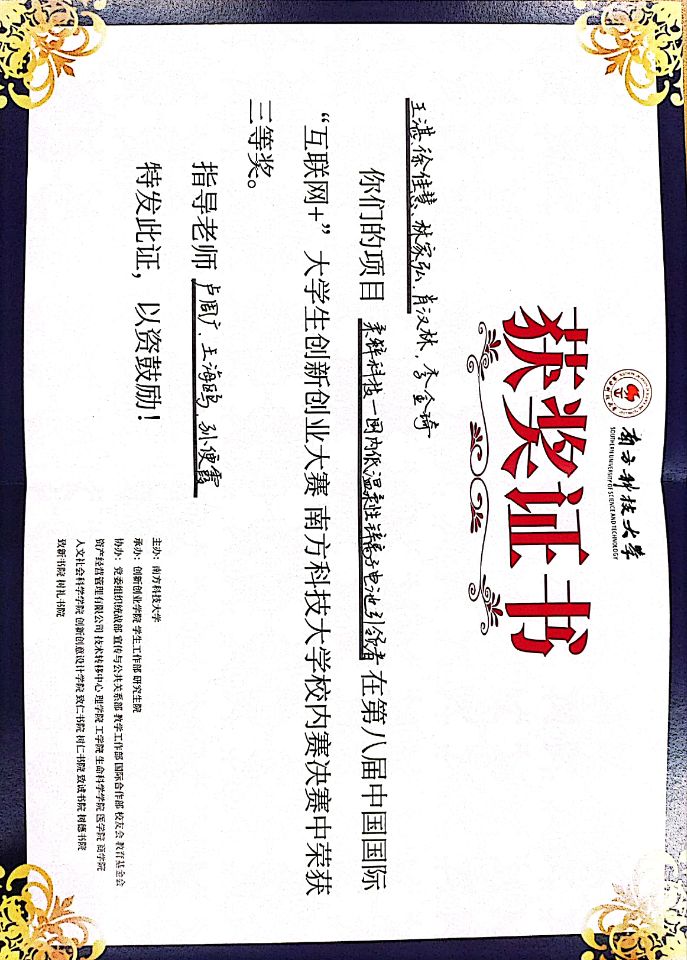 南方科技大学
SOUTHERN UNIVERSITY OF SCIENCE AND TECHNOLOGY
获奖证书
王湛、徐佳慧、林家弘、肖汉林、李金琦
你们的项目 柔锌科技—国内低温柔性锌离子电池引领者 在第八届中国国际
“互联网+”大学生创新创业大赛 南方科技大学校内赛决赛中荣获
三等奖。
指导老师 卢周广、王海鸥、孙便霞
特发此证，以资鼓励！
主办：南方科技大学
承办：创新创业学院 学生工作部 研究生院
协办：党委组织统战部 宣传与公共关系部 教学工作部 国际合作部 校友会 教育基金会
资产经营管理有限公司 技术转移中心 理学院 工学院 生命科学学院 医学院 商学院
人文社会科学学院 创新创意设计学院 致仁书院 树仁书院 致诚书院 树德书院
致新书院 树礼书院